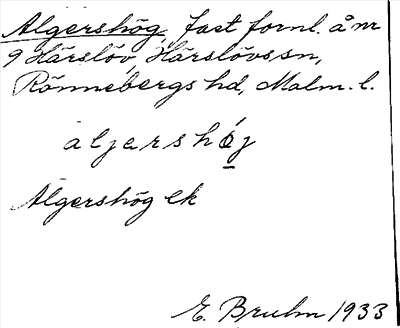 Algershög, fast fornl. å nr
9 Härslöv, Härslövs sn,
Rönnebergs hd, Malm. l.
aljershöj
Algershög ek
E. Bruhn 1933